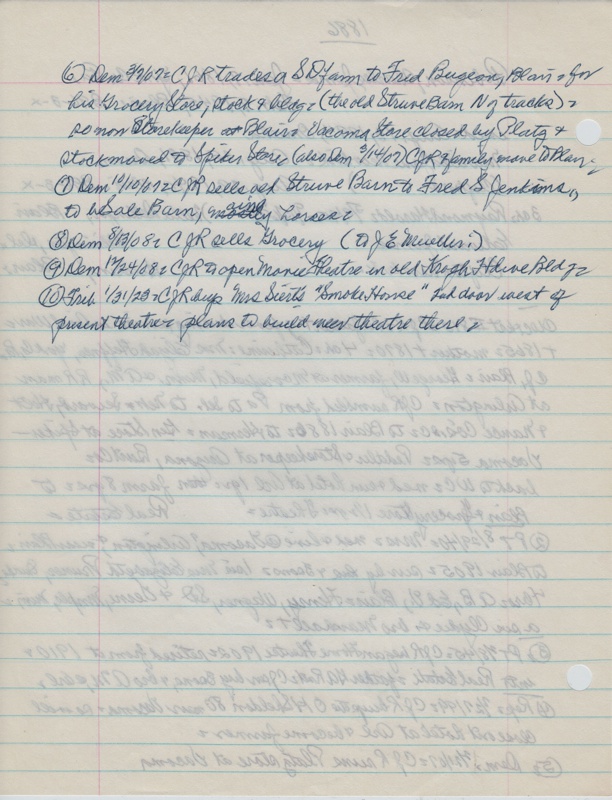 1896
⑥ Dem 3/7/07 = CJR trades a SD farm to Fred Bugeon, Blair = for
his Grocery Store, stock & bldg = (the old Struve Barn N of tracks) =
so now Storekeeper at Blair = Vacoma Store closed by Platz &
stock moved to Spiker Store (also Dem 3/14/07) CJR & family move to Blair =
⑦ Dem 10/10/07 = CJR sells old Struve Barn to Fred S Jenkins,
to b Sale Barn, using horses =
⑧ Dem 8/13/08 = CJR sells Grocery (to J E Mueller:)
⑨ Dem 12/24/08 = CJR to open Movie Theatre in old Krogh Hdwe Bldg =
⑩ Trib 1/31/23 = CJR buys Mrs Siert's "Smoke House" 2nd door west of
present theatre = plans to build new theatre there =